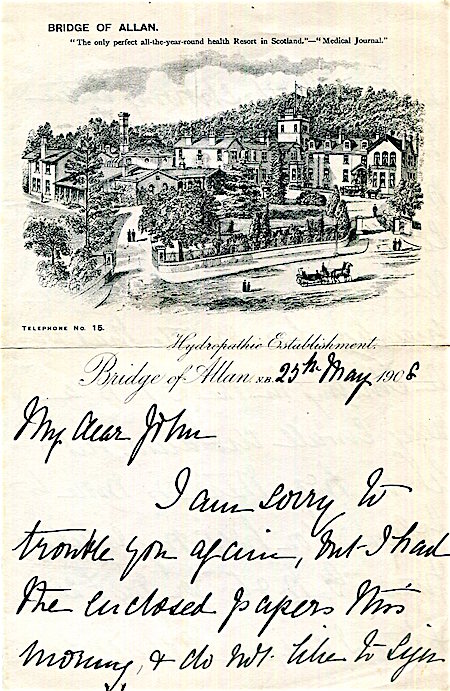 BRIDGE OF ALLAN.
"The only perfect all-the-year-round health Resort in Scotland."—"Medical Journal."
TELEPHONE No. 15.
Hydropathic Establishment,
Bridge of Allan, N.B. 25th May 1908
My dear John
I am sorry to
trouble you again, but I had
the enclosed papers this
morning, & do not like to sign